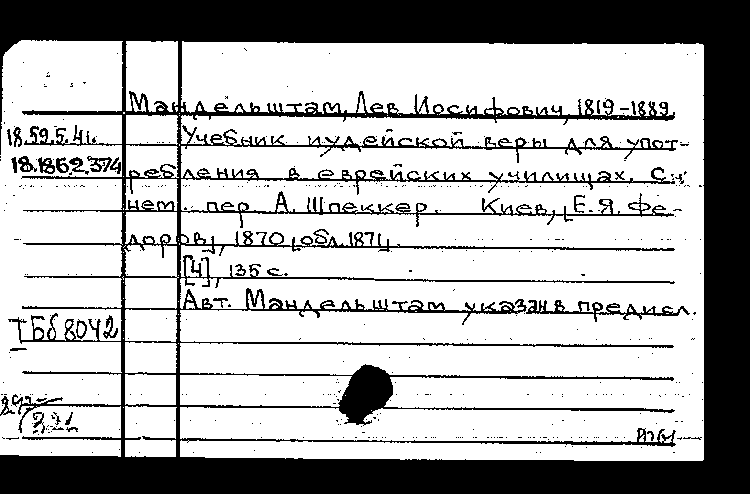 Мандельштам, Лев Иосифович, 1819-1889.
18.59.5.41.
Учебник иудейской веры для упот-
18.186.2.374
ребления в еврейских училищах. С
нем. пер А. Шпеккер. Киев, [Е.Я. Фе-
доров], 1870 [обл. 1871].
[4], 135 с.
Авт. Мандельштам указан в предисл.
I Бб 8042
321